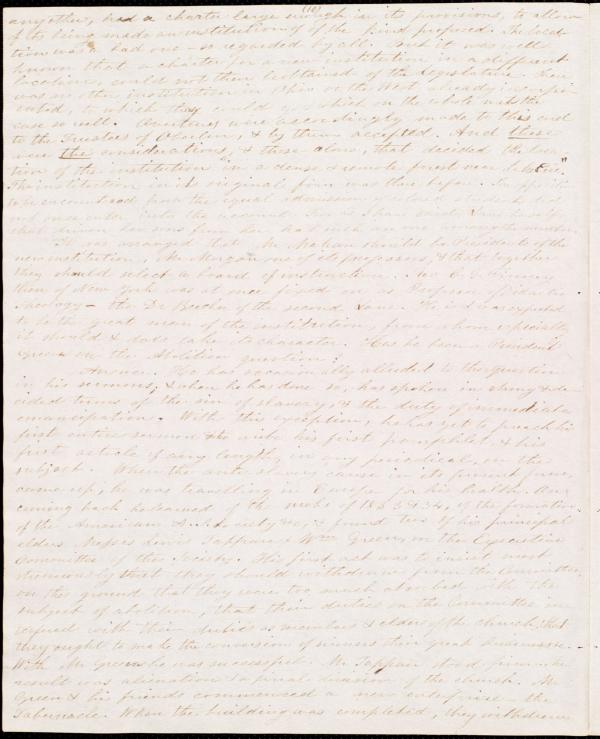 (10)
any other, had a charter large enough in its provisions, to allow
of its being made an institution of the kind proposed. The loca-
tion was a bad one - so regarded by all. But it was well
known that a charter for a new institution in a different
location, could not then be obtained of the Legislature. There
was no other institution in Ohio or the West already incorpo-
rated, to which they could go, which on the whole met the
case so well. Overtures were accordingly made to this end
to the Trustees of Oberlin, & by them accepted. And these
were the considerations, & these alone, that decided the loca-
tion of the institution "in a dense & remote forest near Lake Erie."
The institution in its original form was there before. The opposition
to be encountered from the equal admission of colored students did
not once enter into the account.
It was arranged that Mr Mahan should be President of the
new institution, Mr Morgan one of its professors, & that together
they should select a board of instruction. Rev. C. G. Finney
then of New York was at once fixed on as Professor of Didactic
Theology - the Dr Beecher of the second Lane. He it was expected
to be the great man of the institution, from whom especially
it should & does take its character. Has he been a President
Green on the Abolition question?
Answer. He has occasionally alluded to the question
in his sermons, & when he has done so, has spoken in strong & de-
cided terms of the sin of slavery, & the duty of immediate
emancipation. With this exception, he has yet to preach his
first entire sermon & to write his first pamphlet, & his
first article of any length, in any periodical, on the
subject. When the anti slavery cause in its present form,
came up, he was travelling in Europe for his health. On
coming back he learned of the mobs of 1833 & 34, of the formation
of the American A. S. Society &c, & found two of his principal
elders Messrs Lewis Tappan & Wm Green, on the Executive
Committee of the Society. His first act was to insist most
strenuously that they should withdraw from the Committee,
on the ground that they were too much absorbed with the
subject of abolition, that their duties on the Committee in-
terfered with their duties as members & elders of the church, that
they ought to make the conversion of sinners their great business.
With Mr Green he was successful. Mr Tappan stood firm - the
result was alienation & a final division of the church. Mr
Green & his friends commenced a new enterprise - the
Tabernacle. When the building was completed, they withdrew